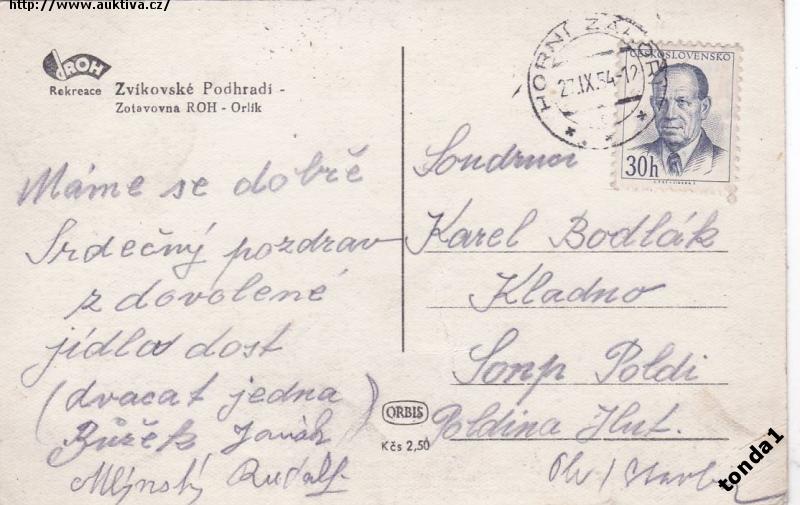 http://www.auktiva.cz/
ROH
Rekreace
Zvíkovské Podhradí -
Zotavovna ROH - Orlík
Máme se dobře
Srdečný pozdrav
z dovolené
jídla dost
(dvacat jedna)
Bůžek
Mlýnský Rudolf
HORNÍ
27.IX.54-12
ČESKOSLOVENSKO
30h
Karel Bodlák
Kladno
Sonp Poldi
Poldina Hut.
ORBIS
Kčs 2,50
tonda1